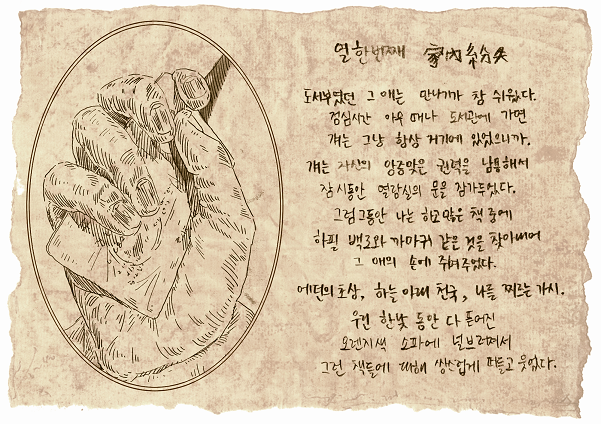 열한번째 室內紛失
도서부였던 그 애는 만나기가 참 쉬웠다.
점심시간 아무 때나 도서관에 가면
걔는 그냥 항상 거기에 있었으니까.
걔는 자신의 앙증맞은 권력을 남용해서
잠시동안 열람실의 문을 잠가두었다.
그럼 그동안 나는 하고많은 책 중에
하필 백로와 까마귀 같은 것을 찾아내어
그 애의 손에 쥐여주었다.
에덴의 초상, 하늘 아래 천국, 나를 찌르는 가시.
우린 한낮 동안 다 뜯어진
오렌지색 소파에 널브러져서
그런 책들에 대해 쌍스럽게 떠들고 웃었다.